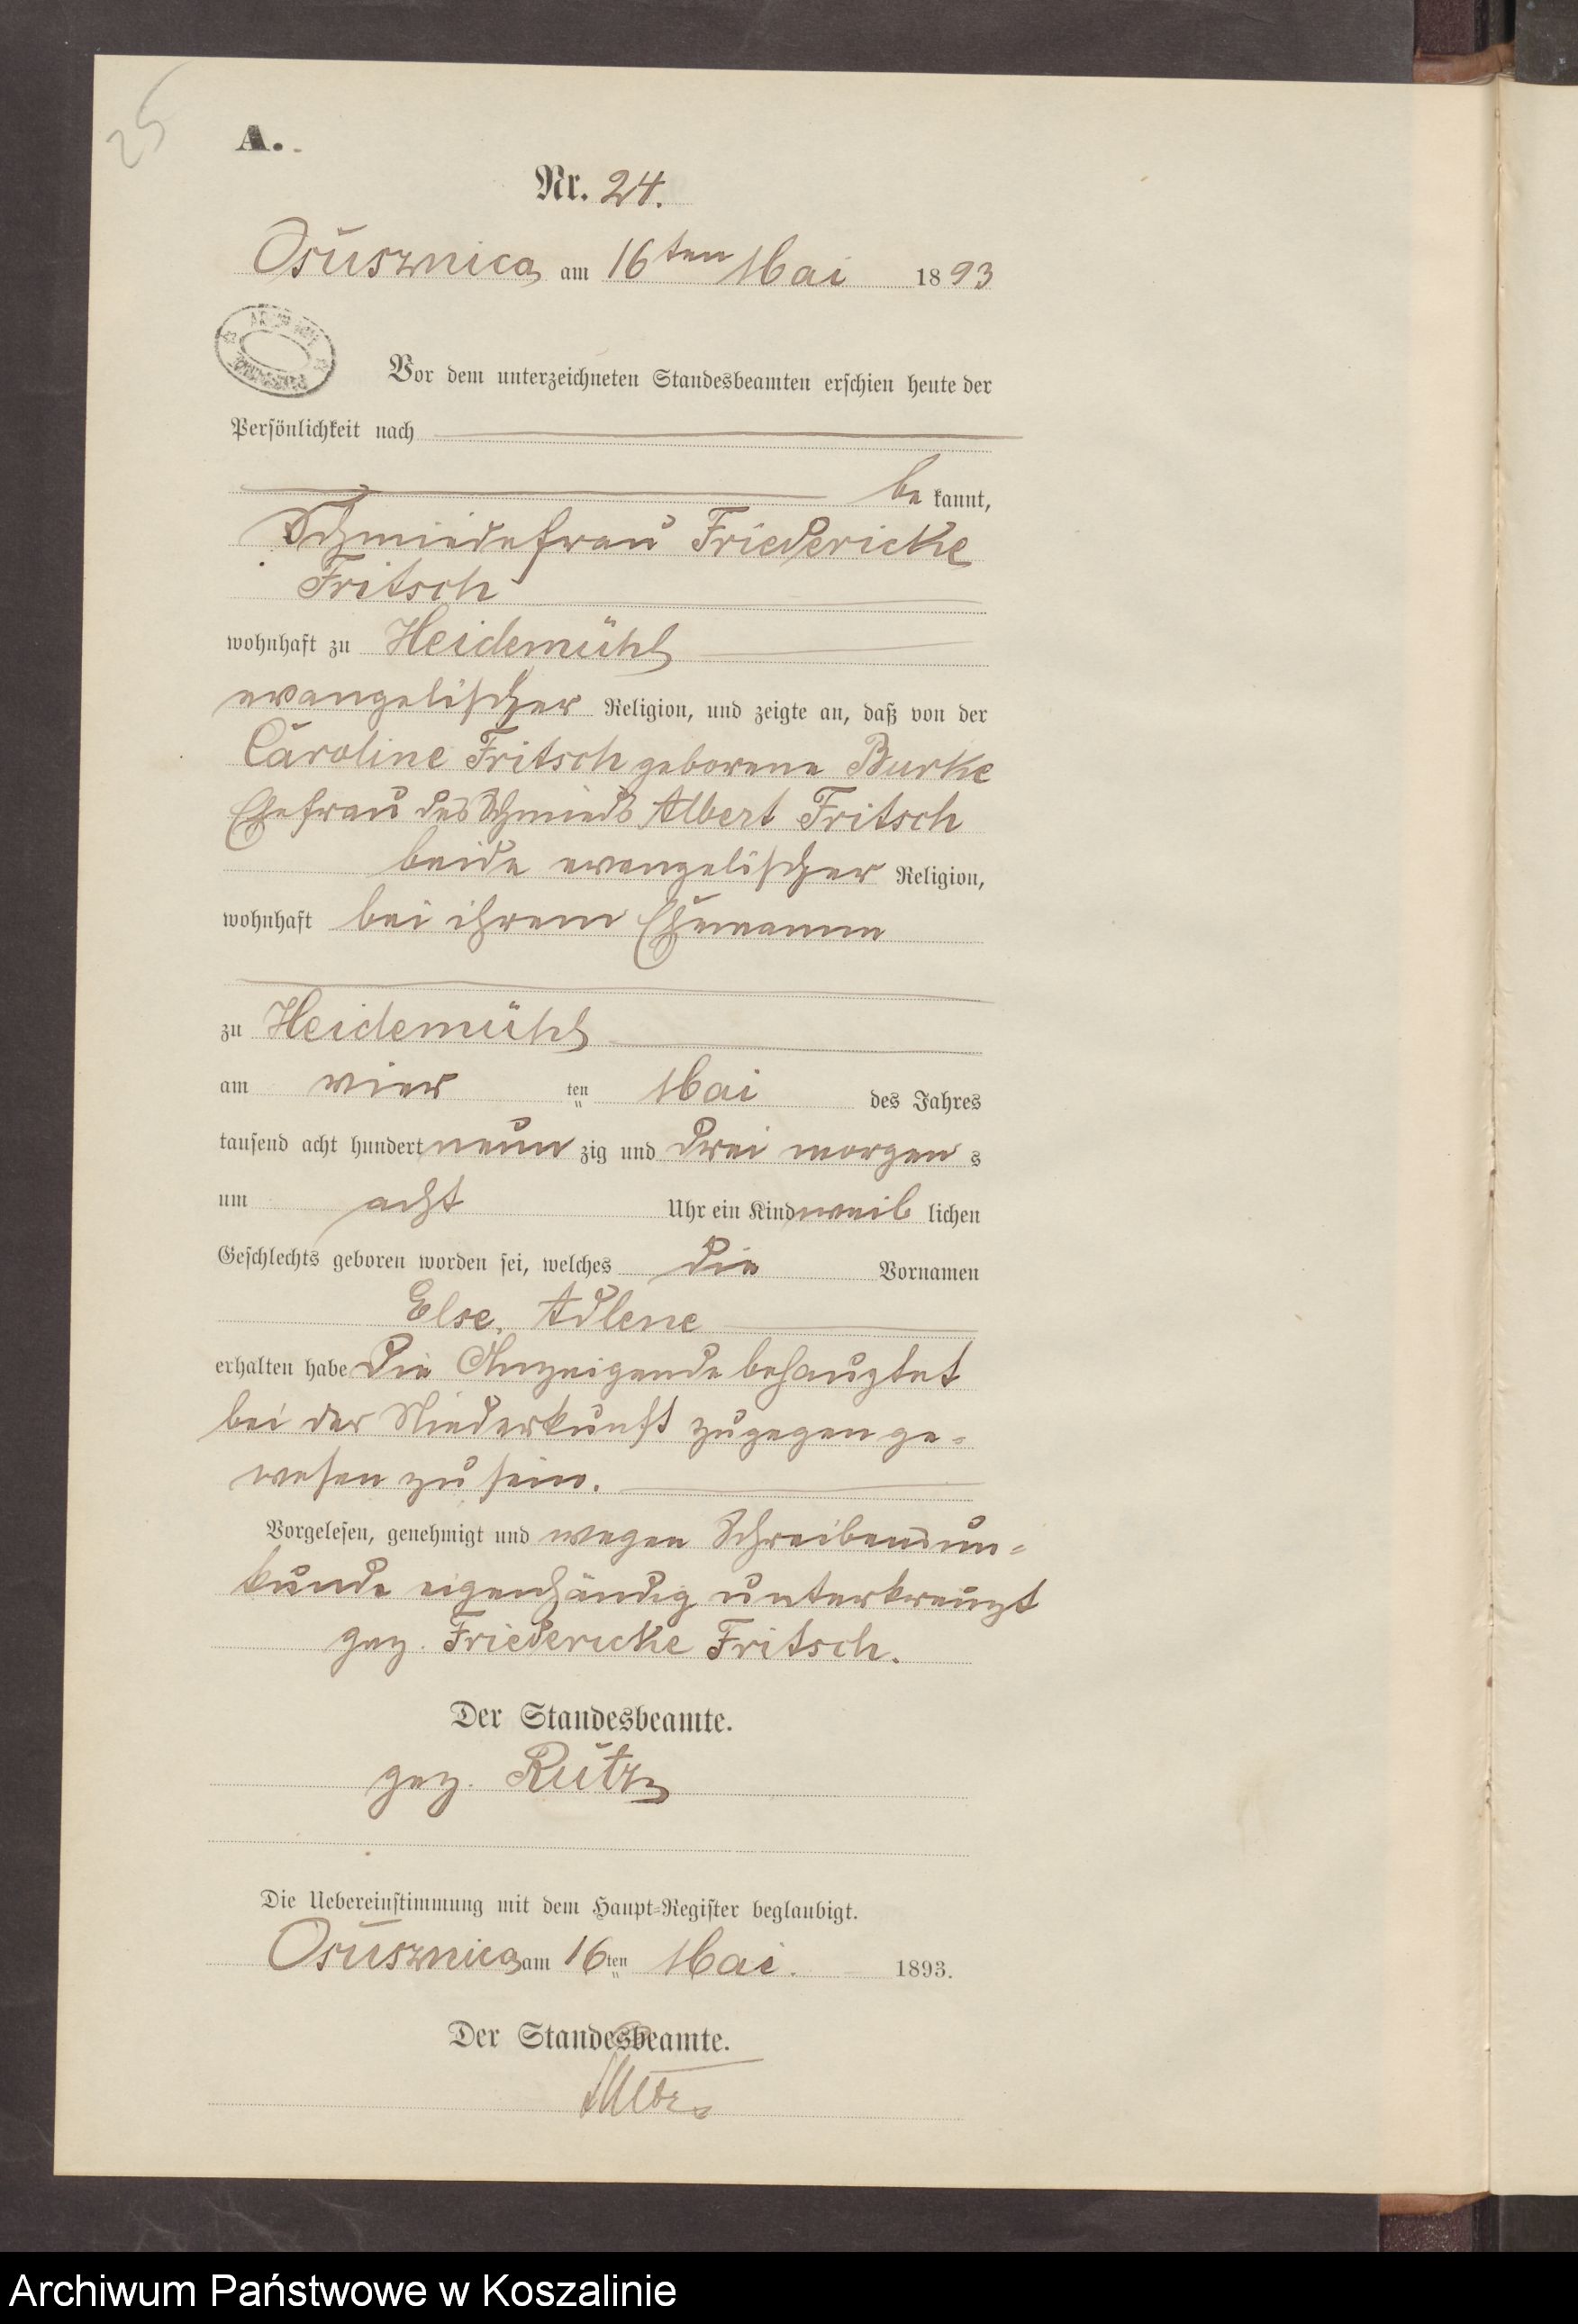 25
A.
Nr. 24.
Osusznica am 16ten Mai 1893
Vor dem unterzeichneten Standesbeamten erschien heute der
Persönlichkeit nach
be kannt,
Schmiedefrau Friedericke
Fritsch
wohnhaft zu Heidemühl
evangelischer Religion, und zeigte an, daß von der
Caroline Fritsch geborene Burke
Ehefrau des Schmieds Albert Fritsch
beide evangelischer Religion,
wohnhaft bei ihrem Ehemanne
zu Heidemühl
am vier ten Mai des Jahres
tausend acht hundert neun zig und drei morgen s
um acht Uhr ein Kind weib lichen
Geschlechts geboren worden sei, welches die Vornamen
Else, Adlene
erhalten habe Die Anzeigende behauptet
bei der Niederkunft zugegen ge-
wesen zu sein.
Vorgelesen, genehmigt und wegen Schreibensun-
kunde eigenhändig unterkreuzt
gez. Friedericke Fritsch.
Der Standesbeamte.
gez. Rütz
Die Uebereinstimmung mit dem Haupt-Register beglaubigt.
Osusznica am 16ten Mai. 1893.
Der Standesbeamte.
Archiwum Państwowe w Koszalinie